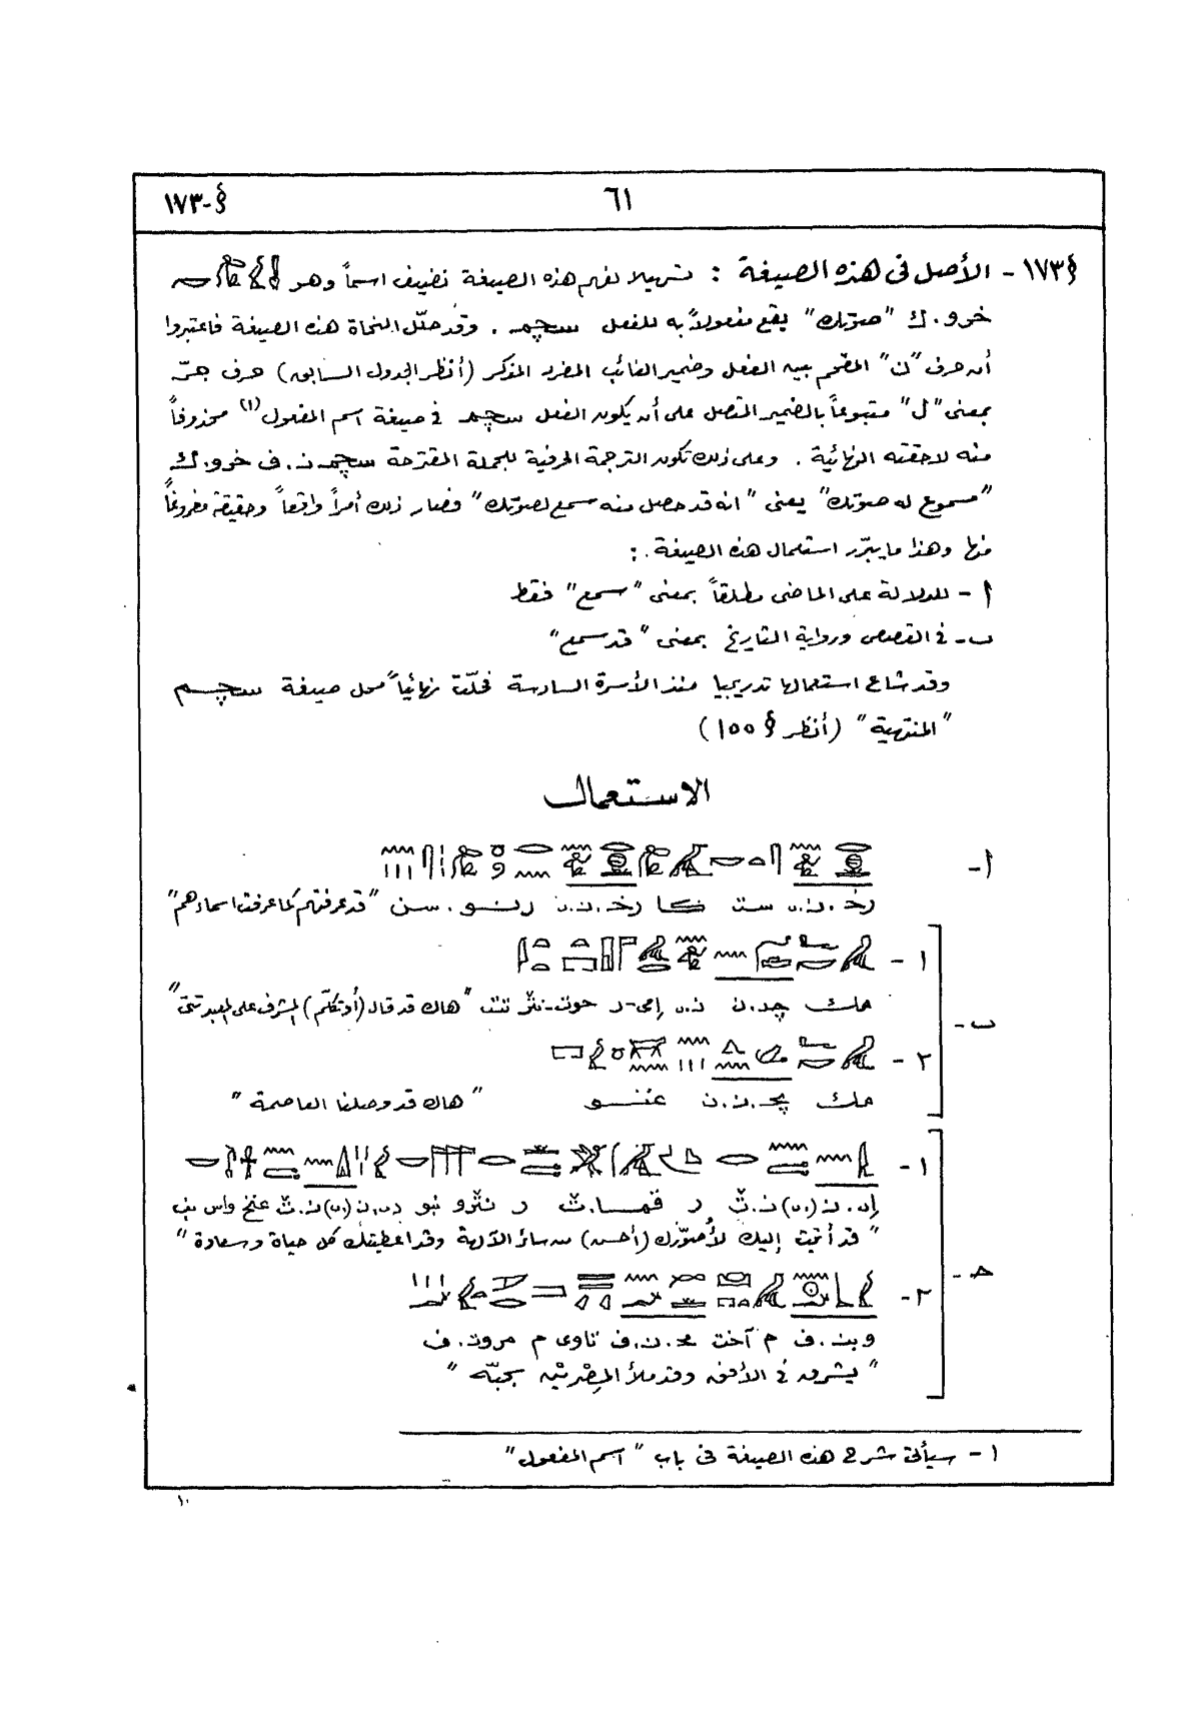 §-١٧٣
٦١
§١٧٣- الأصل فى هذه الصيغة : تسهيلا لفهم هذه الصيغة نضيف اسماً وهو
خرو.ك "صوتك" يقع مفعولاً به للفعل سچم . وقد حلّل النحاة هذه الصيغة فاعتبروا
أن حرف "ن" المقحم بين الفعل وضمير الغائب المفرد المذكر (أنظر الجدول السابق) حرف جرّ
بمعنى "ل" متبوعاً بالضمير المتصل على أن يكون الفعل سچم فى صيغة اسم المفعول (١) محذوفاً
منه لاحقته النهائية . وعلى ذلك تكون الترجمة الحرفية للجملة المقترحة سچم.ن.ف خرو.ك
"مسموع له صوتك" يعنى "انه قد حصل منه سمع لصوتك" فصار ذلك أمراً واقعاً وحقيقة مفروغاً
منها وهذا ما يبرّر استعمال هذه الصيغة :
أ - للدلالة على الماضى مطلقاً بمعنى "سمع" فقط
ب - فى القصص ورواية التاريخ بمعنى "قد سمع"
وقد شاع استعمالها تدريجيا منذ الأسرة السادسة فحلّت نهائياً محل صيغة سچم
"المنتهية" (أنظر § ١٥٥)
الاستعمال
أ-
رخ.ن.ى ست كا رخ.ن.ى رنو.سن "قد عرفتهم كما عرفت اسماءهم"
ب -
١ -
مك چد.ن ن.ى إمى-ر حوت-نثر تنت "هاك قد قال (أو تكلّم) المشرف على المعبد تنتى"
٢ -
مك پح.ن.ن غنو "هاك قد وصلنا العاصمة"
حـ -
١ -
إى.ن (ى) ن.ث ر قما.ث ر نثرو نبو دى.ن (ى) ن.ث عنخ واس نب
"قد أتيت إليك لأصوّرك (أحسن) من سائر الآلهة وقد اعطيتك كل حياة وسعادة"
٢ -
وبن.ف م آخت مح.ن.ف تاوى م مروت.ف
"يشرق فى الأفق وقد ملأ المِصْريْن بحبّه"
١ - سيأتى شرح هذه الصيغة فى باب "اسم المفعول"
١٠